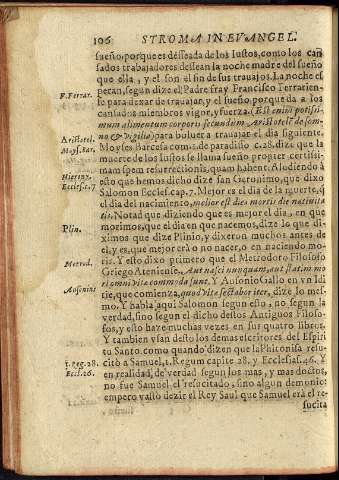 106 STROMA IN EVANGEL.
sueño, porque es desseada de los Iustos, como los can
sados trabajadores dessean la noche madre del sueño
que ella, y el son el fin de sus trauajos. La noche es
F. Ferrar. peran, segun dize el Padre fray Francisco Ferrarien-
se para dexar de trauajar, y el sueño, porque da a los
cansados miembros vigor, y fuerza. (Est enim potissi-
mum alimentum corporis secundum Aristotelē de som-
Aristotel. no & vigilia) para boluer a trauajar el dia siguiente.
Moys. Bar. Moyses Barcefa com. 2. de paradiso c. 28. dize que la
muerte de los Iustos se llama sueño propter certissi-
mam spem resurrectionis, quam habent. Aludiendo à
Hierony. esto que hemos dicho dize san Geronimo, que dixo
Eccles. c. 7 Salomon Eccles. cap. 7. Mejor es el dia de la muerte, q̃
el dia del nacimiento, melior est dies mortis die natiuita
tis. Notad que diziendo que es mejor el dia, en que
Plin. morimos, que el dia en que nacemos, dize lo que di-
ximos que dize Plinio, y dixeron muchos antes de
el, y es, que mejor erà o no nacer, o en naciendo mo-
Metrod. rir. Y esto dixo primero que el Metrodoro Filosofo
Griego Ateniense. Aut nasci nunquam, aut statim mo
ri omni vitæ commoda sunt. Y Ausonio Gallo en vn Idi
Ausonius tie, que comienza, quod vitæ sectabor iter, dize lo mes-
mo. Y habla aqui Salomon segun esto, no segun la
verdad, sino segun el dicho destos Antiguos Filoso-
fos, y esto haze muchas vezes en sus quatro libros.
Y tambien vsan desto los demas escritores del Espiri
tu Santo, como quando dizen que la Phitonisa resu-
1. Reg. 28. citò a Samuel, 1. Regum capite 28. y Ecclesias. 46. Y
Eccl. 26. en realidad, de verdad segun los mas, y mas doctos,
no fue Samuel el resucitado, sino algun demonio:
empero valio dezir el Rey Saul que Samuel erà el re-
sucita